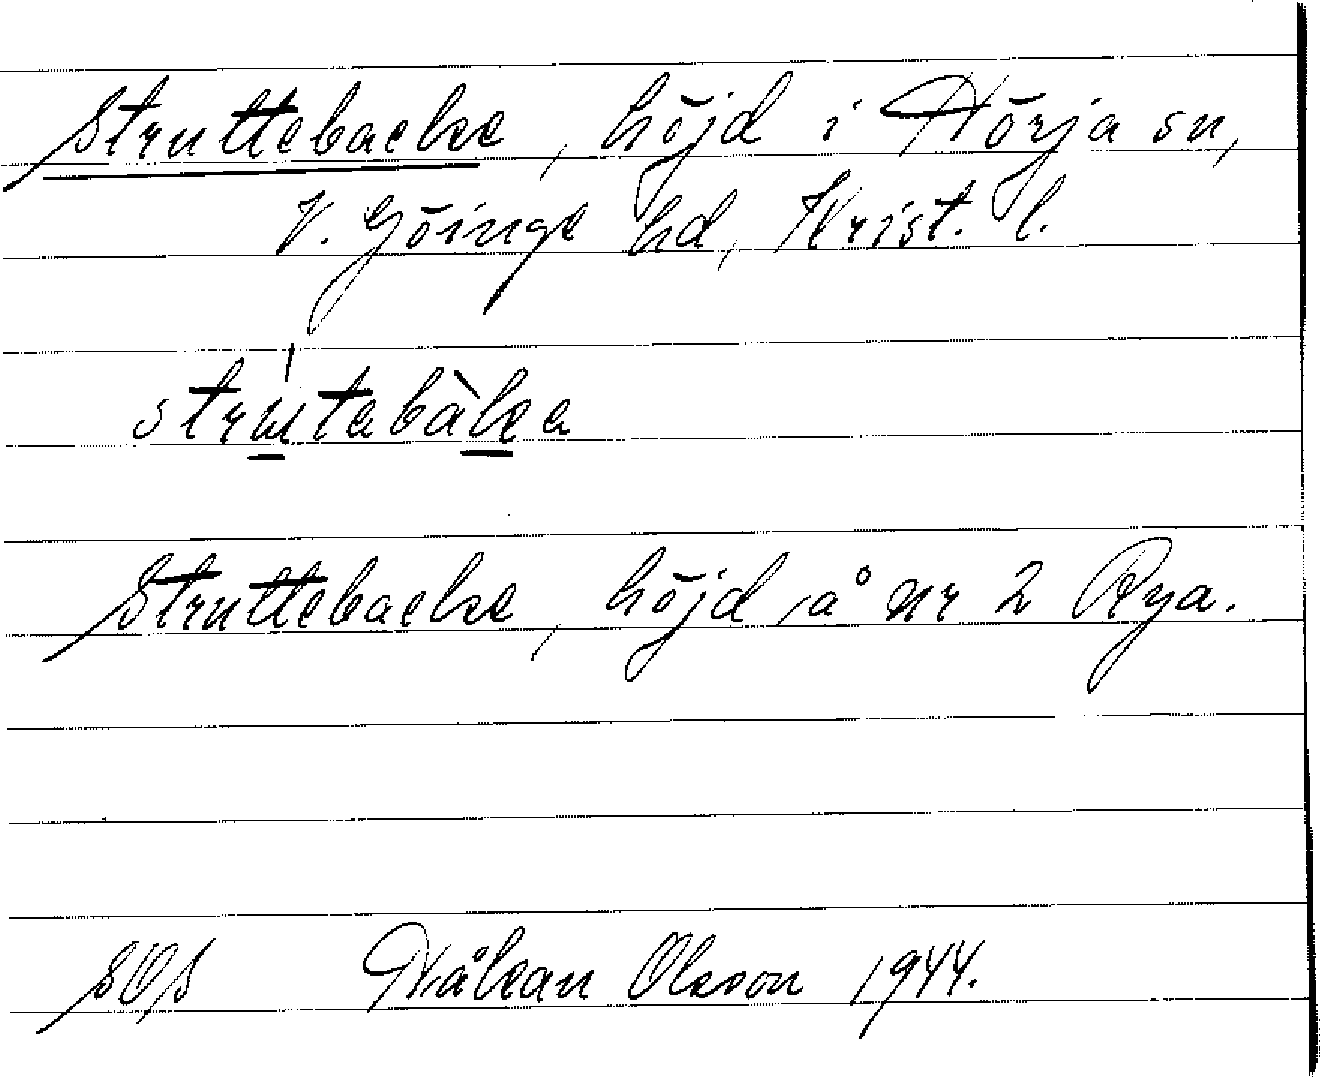 Struttebacke, höjd i Hörja sn,
V. Göinge hd, Krist. l.
Struttebacke, höjd å nr 2 Rya.
SOS Håkan Olsson 1944.